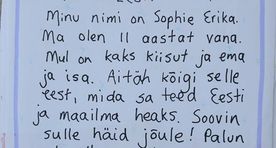 Minu nimi on Sophie Erika.
Ma olen 11 aastat vana.
Mul on kaks kiisut ja ema
ja isa. Aitäh kõigi selle
eest, mida sa teed Eesti
ja maailma heaks. Soovin
sulle häid jõule! Palun